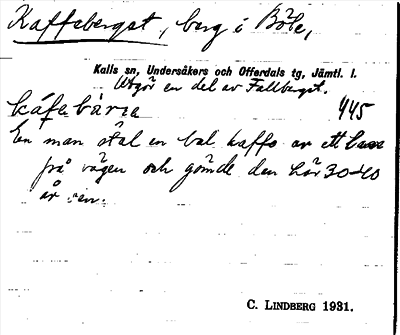 Kaffeberget, berg i Böle,
Kalls sn, Undersåkers och Offerdals tg, Jämtl. l.
Utgör en del av Fallberget.
445
En man stal en bal kaffe av ett lass
på vägen och gömde den här 30-40
år sen.
C. LINDBERG 1931.